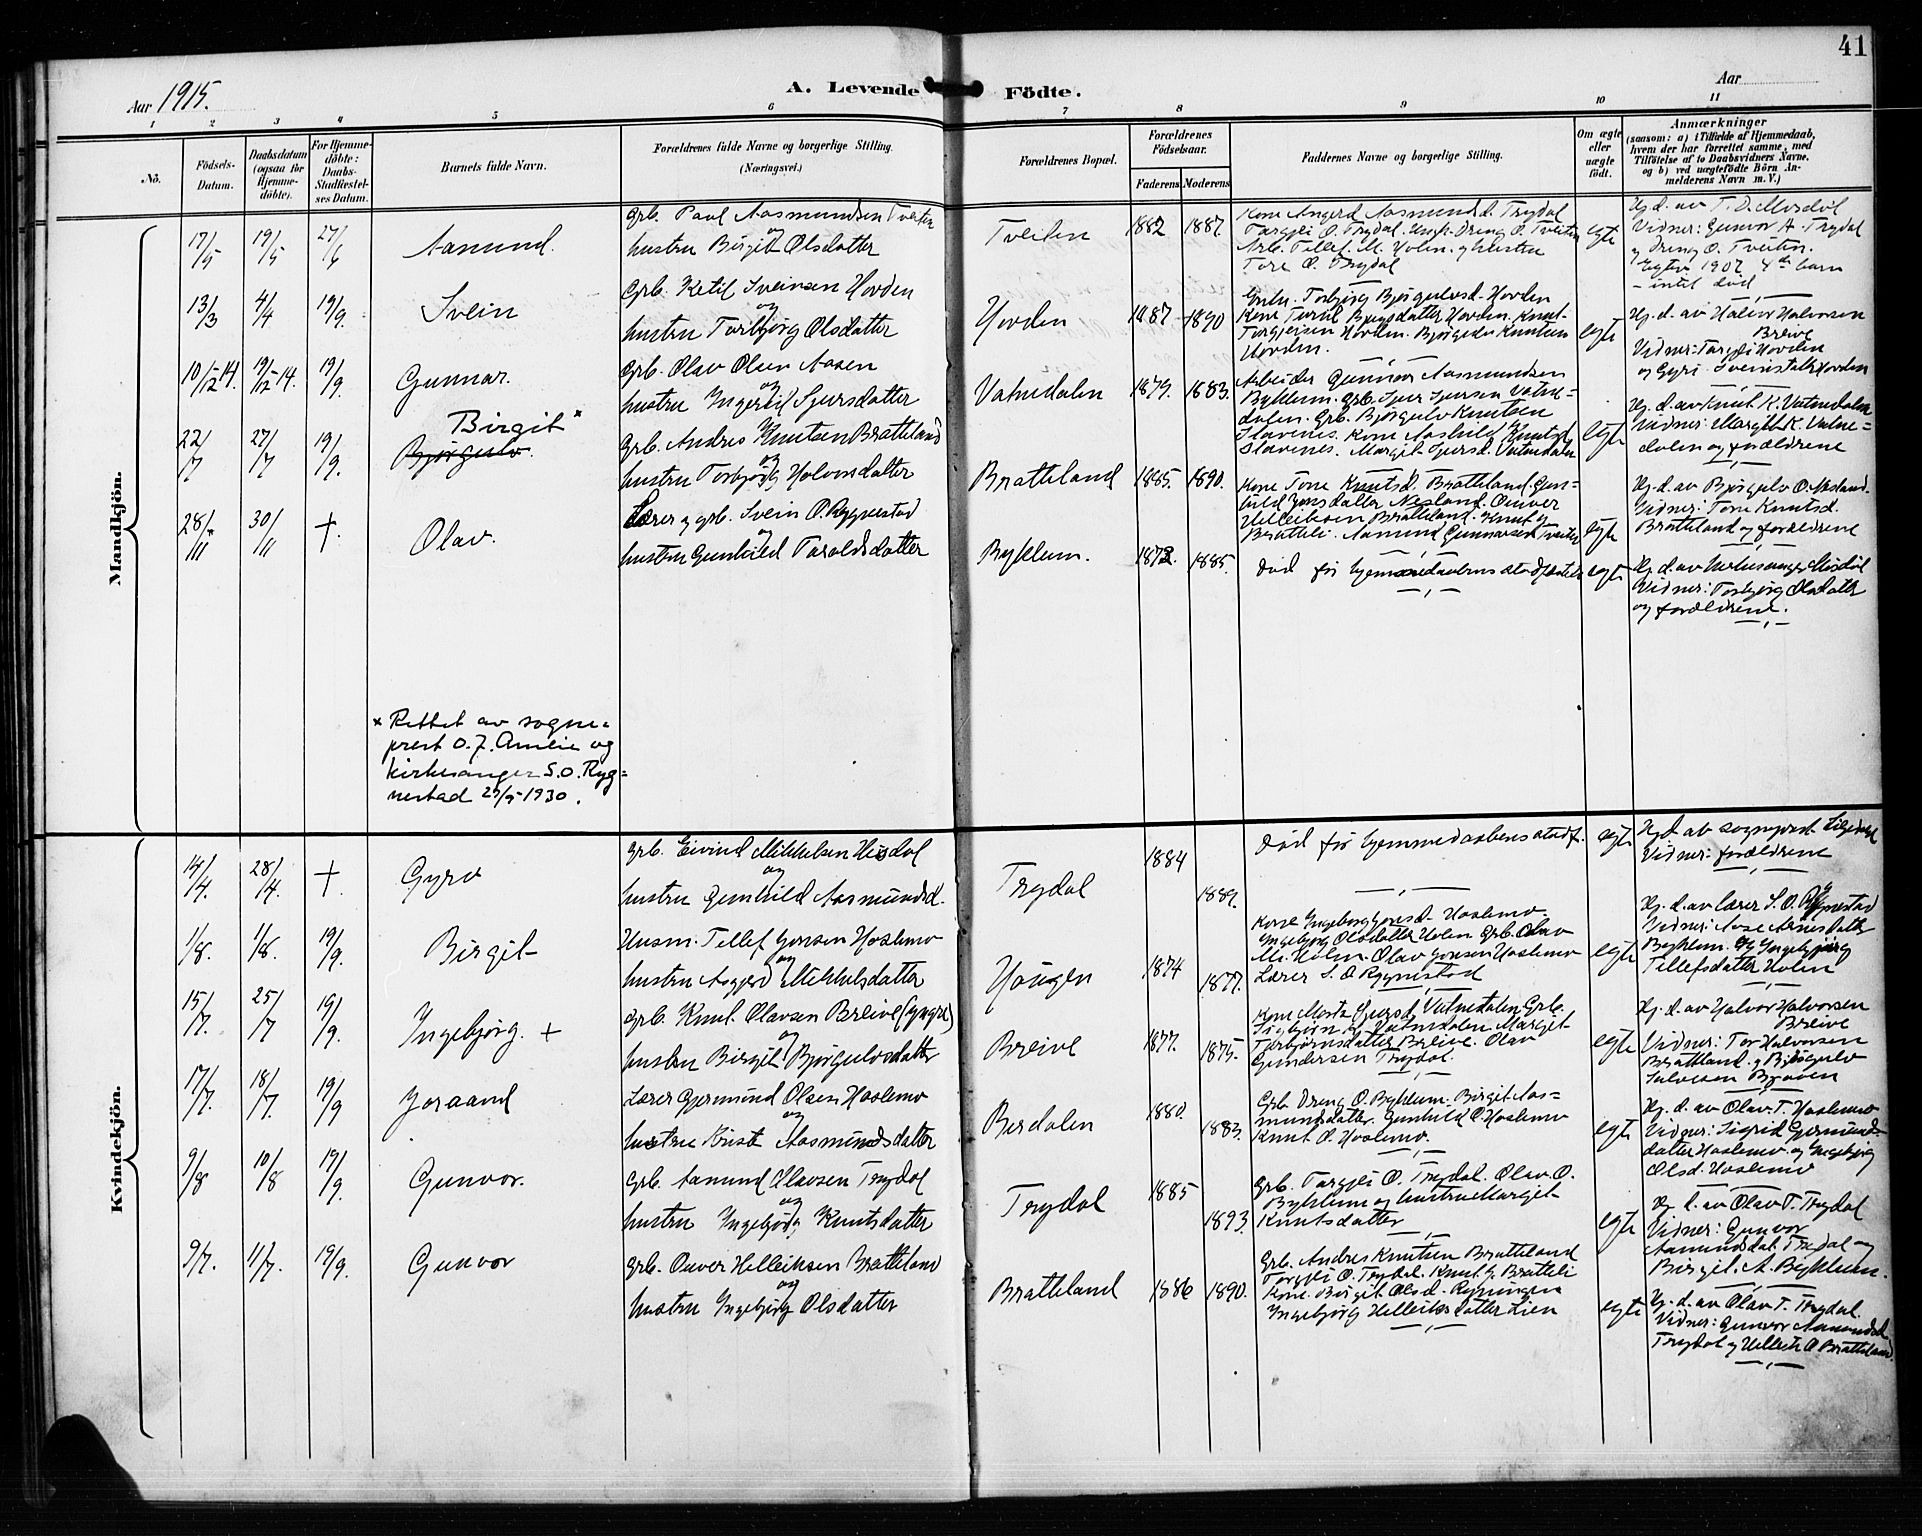 41
Aar 1915.
A. Levende Födte.
Aar
1 2 3 4 5 6 7 8 9 10 11
No.
Födsels-Datum.
Daabsdatum (ogsaa for Hjemme-döbte).
For Hjemme-döbte: Daabs-Stadfæstel-ses Datum.
Barnets fulde Navn.
Forældrenes fulde Navne og borgerlige Stilling.
(Næringsvei.)
Forældrenes Bopæl.
Forældrenes Födselsaar.
Faderens Moderens
Faddernes Navne og borgerlige Stilling.
Om ægte eller uægte födt.
Anmærkninger
(saasom: a) i Tilfælde af Hjemmedaab, hvem der har forrettet samme, med Tilföielse af to Daabsvidners Navne, og b) ved uægtefödte Börn An-melderens Navn m. V.)
Mandkjön.
17/5 19/5 27/6 Aamund.
Grb. Paul Aasmundsen Tveiten
og
hustru Birgit Olsdatter
Tveiten 1882 1887.
Kone Angerd Aasmundsd. Trydal
Targjei O. Trydal. Ungk. Dreng O. Tveiten
Arb. Tellef M. Holen. og hustru
Tore O. Trydal
egte
Hj.d. av T. D. Mosdøl
Vidner: Gunvor A. Trydal
og Dreng O. Tveiten.
Egtev. 1907 4de barn
- intet død
13/3 4/4 19/9. Svein
Grb. Ketil Sveinsen Hovden
og
hustru Torbjørg Olsdatter
Hovden 1887 1890
Torbjørg Bjørgulvsd. Hovden
Hovden. Knut
Torgjeirsen Hovden. Bjørgulv Knutsen
Hovden.
egte
Hj.d. av Halvor Halvorsen
Breive
Vidner: Targjei Hovden
og Gyri Hovden
10/12 14. 19/12 14. 19/9. Gunnar.
Grb. Olav Olsen Aasen
og
hustru Ingereid Sjursdatter
Vatnedalen 1879. 1883.
Arbeider Gunnar Aasmundsen
Byklum. Grb. Sjur Sjursen Vatne-
dalen. Grb. Bjørgulv Knutsen
Slavenes. Kone Aashild Knutsd.
Slavenes. Margit Sjursd. Vatnedalen
egte
Hj.d. av Knut K. Vatnedalen
Vidner: Margit K. Vatne-
dalen og forældrene
22/7 27/7 19/9. Birgit ×
Bjørgulv.
Grb. Andres Knutsen Bratteland
og
hustru Torbjørg Halvorsdatter
Bratteland 1885. 1890.
Kone Tone Knutsd. Bratteland. Gun-
hild Jonsdatter Nesland. Onuver
Helleiksen Bratteland. Knut G.
Bratteli. Aamund Gunnarsen Tveiten
egte
Hj.d. av Bjørgulv O. Nesland.
Vidner: Tone Knutsd.
Bratteland og forældrene
28/11 30/11 +. Olav.
Lærer og grb. Svein O. Rygnestad
og
hustru Gunhild Taraldsdatter
Byklum. 1872. 1885.
død før hjemmedaabens stadfæstelse
egte
Hj.d. av Kirkesanger Mosdøl
Vidner: Torbjørg Olsdatter
og forældrene.
× Rettet av sogne-
prest O. J. Ameln og
kirkesanger S. O. Ryg=
nestad 29/5-1930.
Kvindekjön.
14/4. 28/4. +. Gyro
Grb. Eivind Mikkelsen Hisdal
og
hustru Gunhild Aasmundsd.
Trydal 1884 1889.
død før hjemmedaabens stadf.
egte
Hj.d. av sogneprest
Vidner: forældrene
1/8. 1/8. 19/9. Birgit
Husm. Tellef Jonsen Hoslemo
og
hustru Aagjerd Mikkelsdatter
Haugen 1874 1877.
Kone Ingeborg Jonsd. Hoslemo
Ingebjørg Olsdatter Holen Grb. Olav
M. Holen. Olav Jonsen Hoslemo
Lærer S. O. Rygnestad
egte
Hj.d. av lærer S. O. Rygnestad
Vidner: Aase Arnesdatter
Byklum. Og Ingebjørg
Tellefsdatter Holen
15/7. 25/7 19/9. Ingebjørg. +
Grb. Knut Olavsen Breive (yngre)
og
hustru Birgit Bjørgulvsdatter
Breive 1877. 1875.
Kone Marta Gjursd. Vatnedalen Grb.
Sigbjørn K. Vatnedalen Margit
Torbjørnsdatter Breive. Olav
Gundersen Trydal.
egte
Hj.d. av Halvor Halvorsen
Breive
Vidner: Tor Halvorsen
Bratteland. og Bjørgulv
Salvesen Bjaaen
17/7. 18/7. 19/9 Joraand
Lærer Gjermund Olsen Hoslemo
og
hustru Kirst. Aasmundsdatter
Berdalen 1880. 1883.
Grb. Dreng O. Byklum. Birgit Aas=
mundsdatter. Gunhild O. Hoslemo
Knut O. Hoslemo.
egte
Hj. d. av Olav T. Hoslemo
Vidner: Sigrid Gjermunds-
datter Hoslemo. og Ingebjørg
Olsd. Hoslemo
9/8 10/8 19/9. Gunvor.
Grb. Aamund Olavsen Trydal
og
hustru Ingebjørg Knutsdatter
Trydal 1885 1893.
Grb. Targjei O. Trydal. Olav O.
Byklum og hustru Margit
Knutsdatter
egte
Hj. d. av Olav T. Trydal
Vidner: Gunvor
Aamundsdat. Trydal og
Birgit. A. Byklum.
9/7. 11/7. 19/9. Gunvor
Grb. Onver Helleiksen Bratteland
og
hustru Ingebjørg Olsdatter
Bratteland 1886 1890.
Grb. Andres Knutsen Bratteland
Targjei O. Trydal. Knut G. Bratteli
Kone. Birgit Olsd. Ryningen
Ingebjørg Helleiksdatter Lien
egte
Hj. d. av Olav T. Trydal.
Vidner: Gunvor Aamundsd.
Trydal og Helleik O. Bratteland